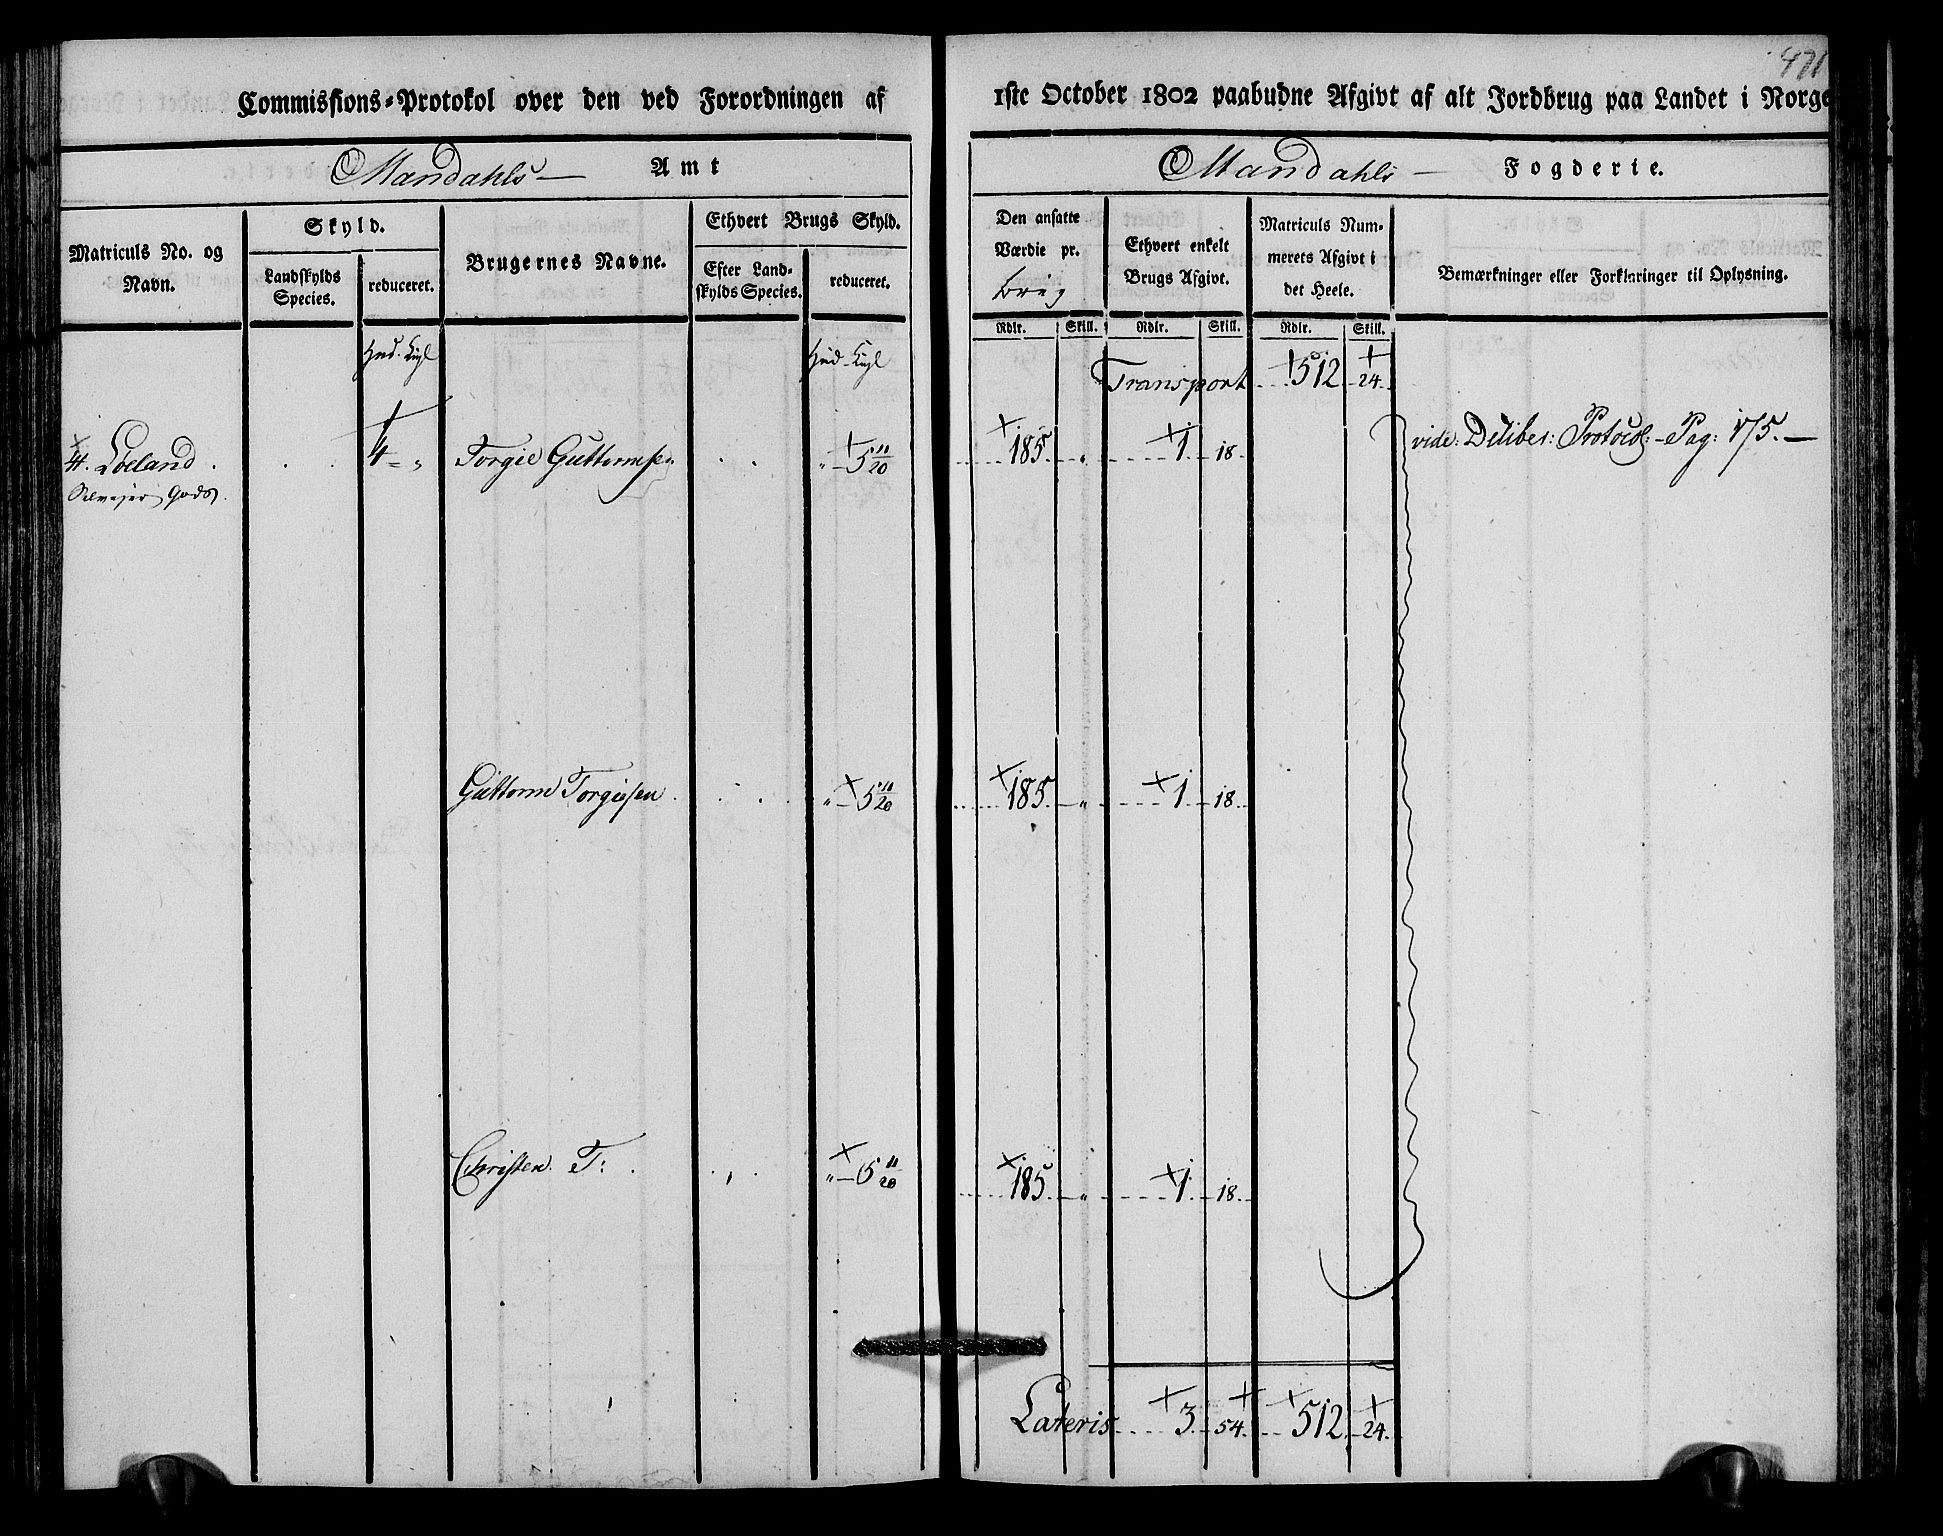 471
Commissions=Protokol over den ved Forordningen af 1ste October 1802 paabudne Afgivt af alt Jordbrug paa Landet i Norge
Mandahls Amt
Mandahls Fogderie.
Matriculs No. og Navn.
Skyld.
Landskylds Species.
reduceret.
Brugernes Navne.
Ethvert Brugs Skyld.
Efter Landskylds Species.
reduceret.
Den ansatte Værdie pr. brug
Ethvert enkelt Brugs Afgivt.
Matriculs Nummerets Afgivt i det Heele.
Bemærkninger eller Forklaringer til Oplysning.
Rdlr. Skill. Rdlr. Skill. Rdlr. Skill.
Hud. Kigl Hud. Kigl
Transport 512 24
4. Loeland 4 " Torgie Guttormsen " 5 11/20 185 " 1 18 vide: Delibes: Protocol: Pag: 175.
Selvejer Gods
Guttorm Torgiesen " 5 11/20 185 " 1 18
Christen T: " 5 11/20 185 " 1 18
Lateris 3 54 512 24